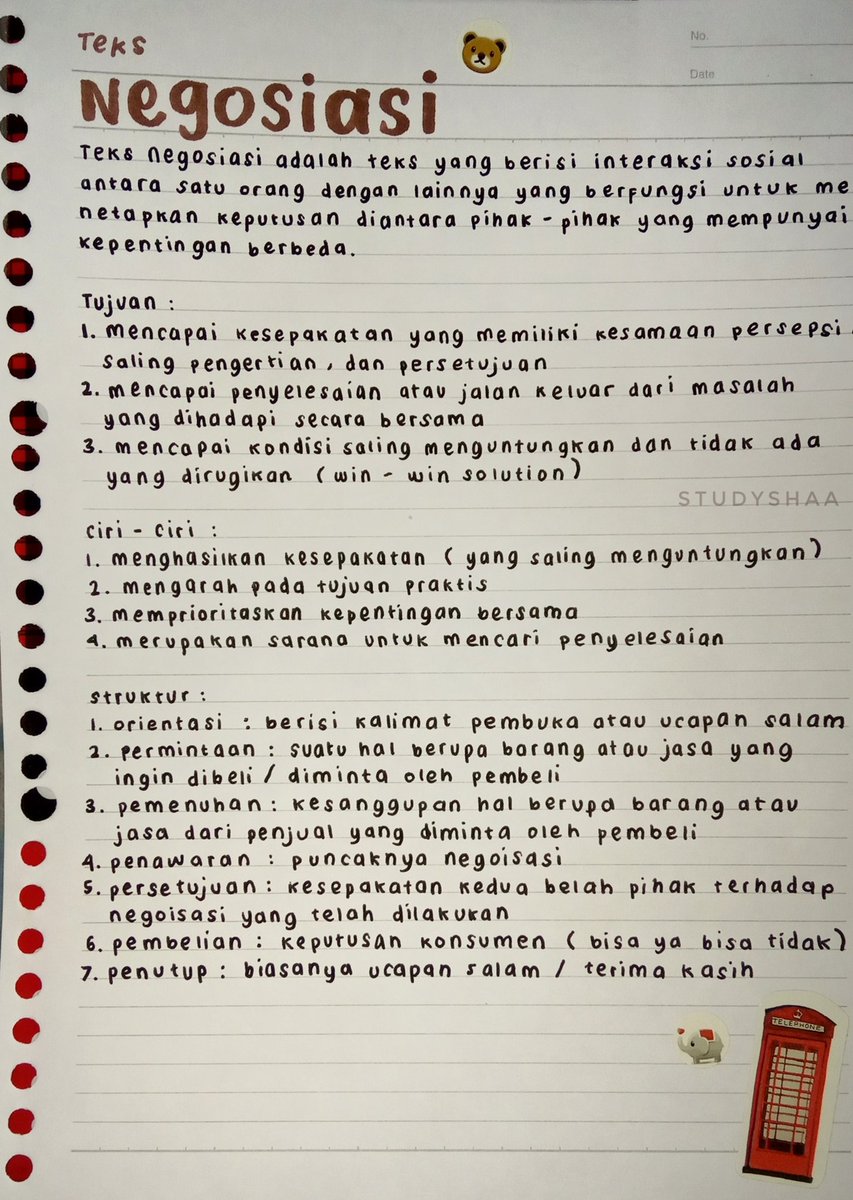 Teks
No.
Negosiasi
Date
Teks negosiasi adalah teks yang berisi interaksi sosial
antara satu orang dengan lainnya yang berfungsi untuk me
netapkan keputusan diantara pihak - pihak yang mempunyai
kepentingan berbeda.
Tujuan :
1. mencapai kesepakatan yang memiliki kesamaan persepsi,
saling pengertian, dan persetujuan
2. mencapai penyelesaian atau jalan keluar dari masalah
yang dihadapi secara bersama
3. mencapai kondisi saling menguntungkan dan tidak ada
yang dirugikan (win - win solution)
STUDYSHAA
Ciri - Ciri :
1. menghasilkan kesepakatan (yang saling menguntungkan)
2. mengarah pada tujuan praktis
3. memprioritaskan kepentingan bersama
4. merupakan sarana untuk mencari penyelesaian
Struktur :
1. orientasi : berisi kalimat pembuka atau ucapan salam
2. permintaan : suatu hal berupa barang atau jasa yang
ingin dibeli / diminta oleh pembeli
3. pemenuhan : kesanggupan hal berupa barang atau
jasa dari penjual yang diminta oleh pembeli
4. penawaran : puncaknya negoisasi
5. persetujuan : kesepakatan kedua belah pihak terhadap
negoisasi yang telah dilakukan
6. pembelian : keputusan konsumen (bisa ya bisa tidak)
7. penutup : biasanya ucapan salam / terima kasih
TELEPHONE